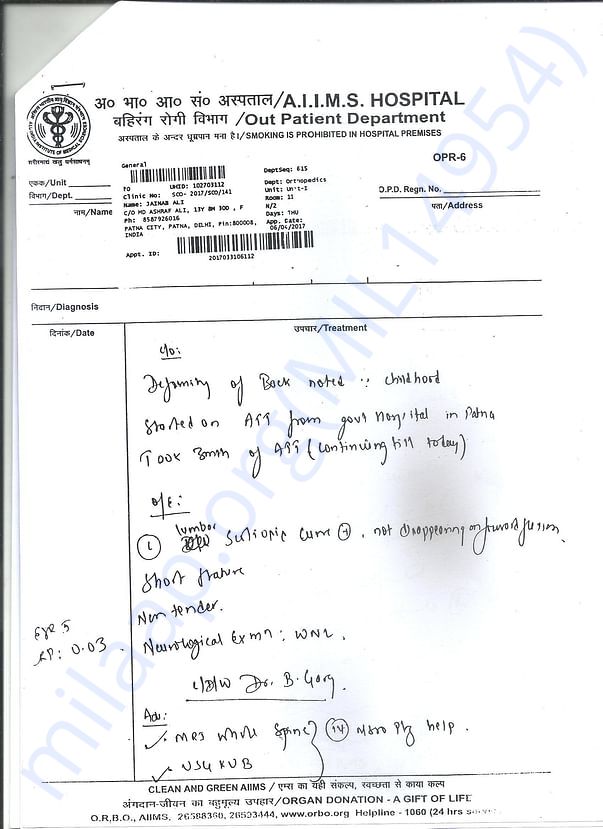 अ० भा० आ० सं० अस्पताल/A.I.I.M.S. HOSPITAL
वहिरंग रोगी विभाग /Out Patient Department
अस्पताल के अन्दर धूम्रपान मना है।/SMOKING IS PROHIBITED IN HOSPITAL PREMISES
OPR-6
General
एकक/Unit
विभाग/Dept.
नाम/Name
UHID: 102703112
Clinic No: SCO- 2017/SCO/141
Name: JAINAB ALI
C/O MD ASHRAF ALI, 13Y 8M 30D , F
Ph: 8587926016
PATNA CITY, PATNA, DELHI, Pin:800008,
INDIA
DeptSeq: 615
Dept: Orthopedics
Unit: Unit-I
Room: 11
N/2
Days: THU
App. Date:
06/04/2017
Appt. ID:
2017033106112
O.P.D. Regn. No.
पता/Address
निदान/Diagnosis
दिनांक/Date
उपचार/Treatment
c/o:
Deformity of Back noted :: childhood
started on ATT from govt Hospital in Patna
Took 3mth of ATT (continuing till today)
o/E:
1 lumbar Scoliotic curve +, not disappearing on forward flexion.
Short stature
Non tender.
Neurological Exmn: WNL.
: 0.03
C/D/W Dr. B. Garg.
Adv:
MRI whole spine
USG KUB
Plz help.
CLEAN AND GREEN AIIMS / एम्स का यही संकल्प, स्वच्छता से काया कल्प
अंगदान-जीवन का बहुमूल्य उपहार/ORGAN DONATION - A GIFT OF LIFE
O.R.B.O., AIIMS, 26588360, 26593444, www.orbo.org Helpline - 1060 (24 hrs
milaap.org(MIL14954)